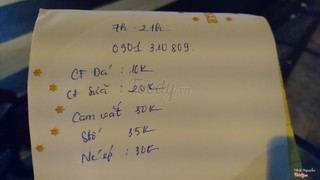 7h - 21h
0901 310 809
CF Đá : 16K
CF Sữa : 20K
Cam vắt 30K
Stố 35K
Nước ép : 30K
Foody.vn